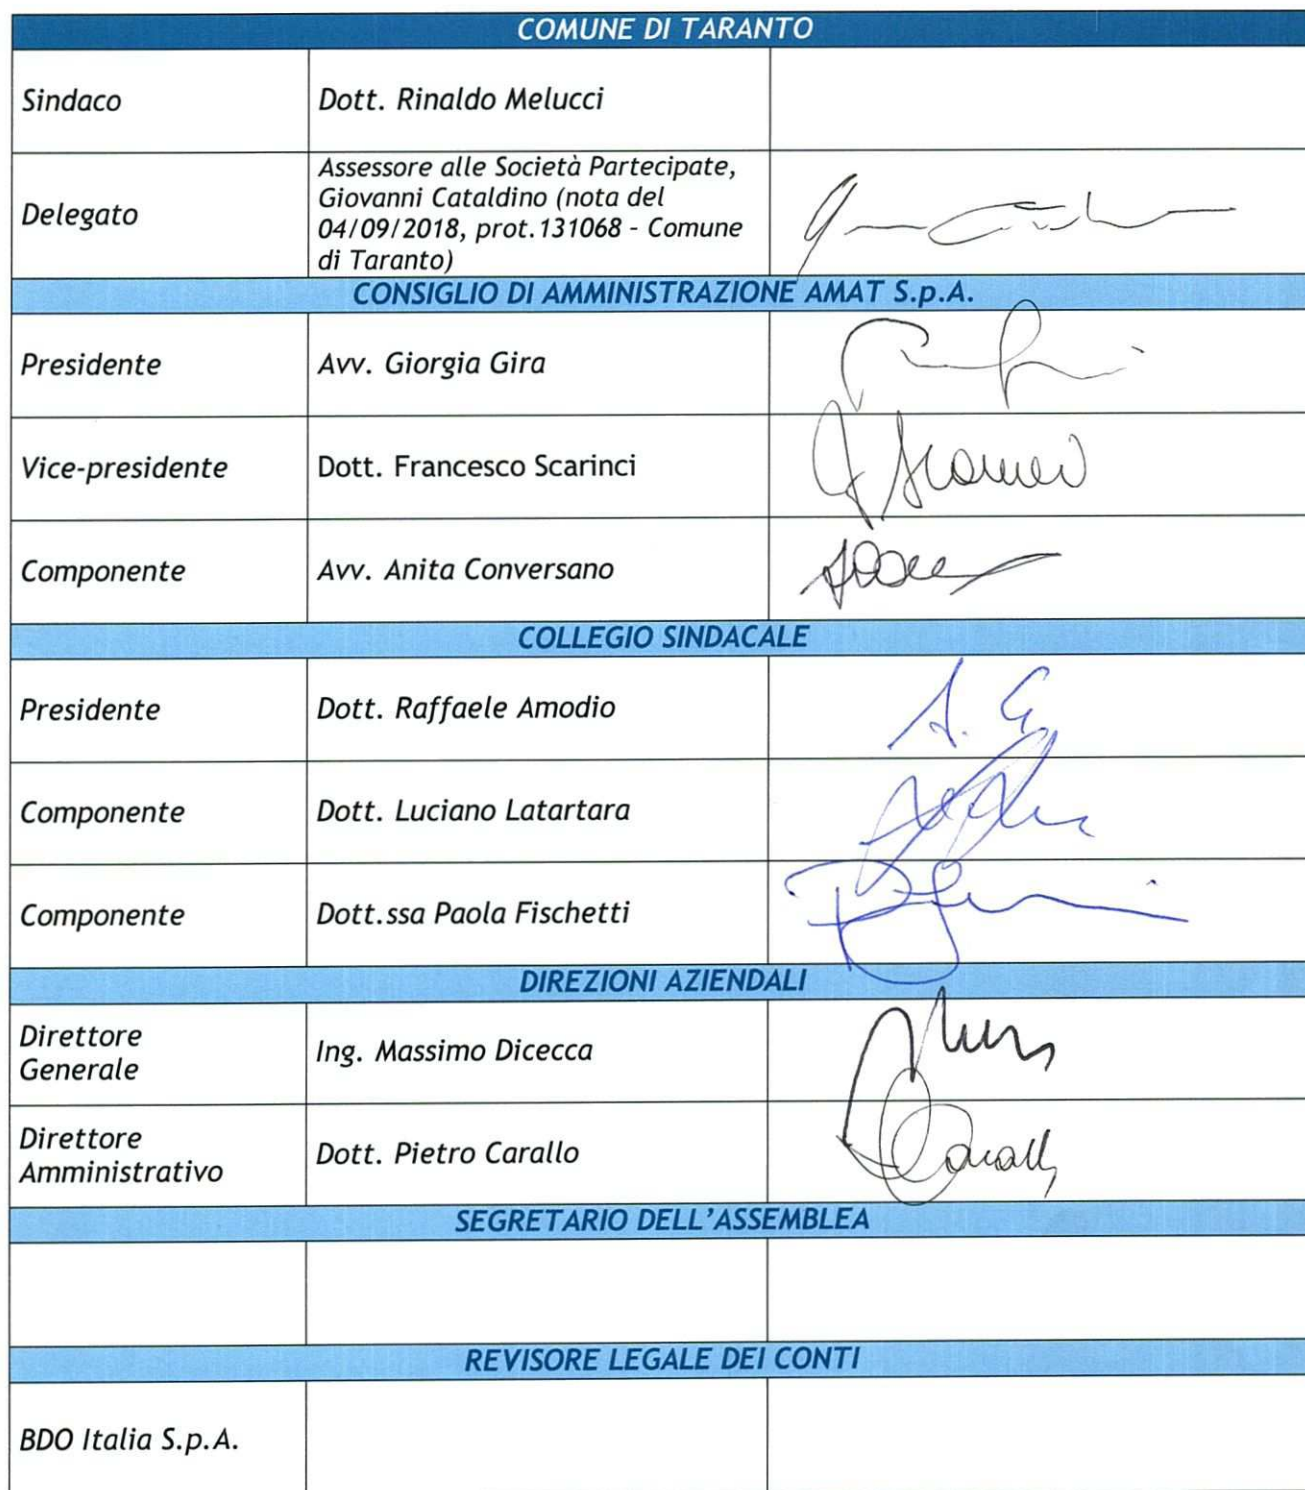 COMUNE DI TARANTO
Sindaco
Dott. Rinaldo Melucci
Delegato
Assessore alle Società Partecipate,
Giovanni Cataldino (nota del
04/09/2018, prot.131068 - Comune
di Taranto)
CONSIGLIO DI AMMINISTRAZIONE AMAT S.p.A.
Presidente
Avv. Giorgia Gira
Vice-presidente
Dott. Francesco Scarinci
Componente
Avv. Anita Conversano
COLLEGIO SINDACALE
Presidente
Dott. Raffaele Amodio
Componente
Dott. Luciano Latartara
Componente
Dott.ssa Paola Fischetti
DIREZIONI AZIENDALI
Direttore
Generale
Ing. Massimo Dicecca
Direttore
Amministrativo
Dott. Pietro Carallo
SEGRETARIO DELL'ASSEMBLEA
REVISORE LEGALE DEI CONTI
BDO Italia S.p.A.